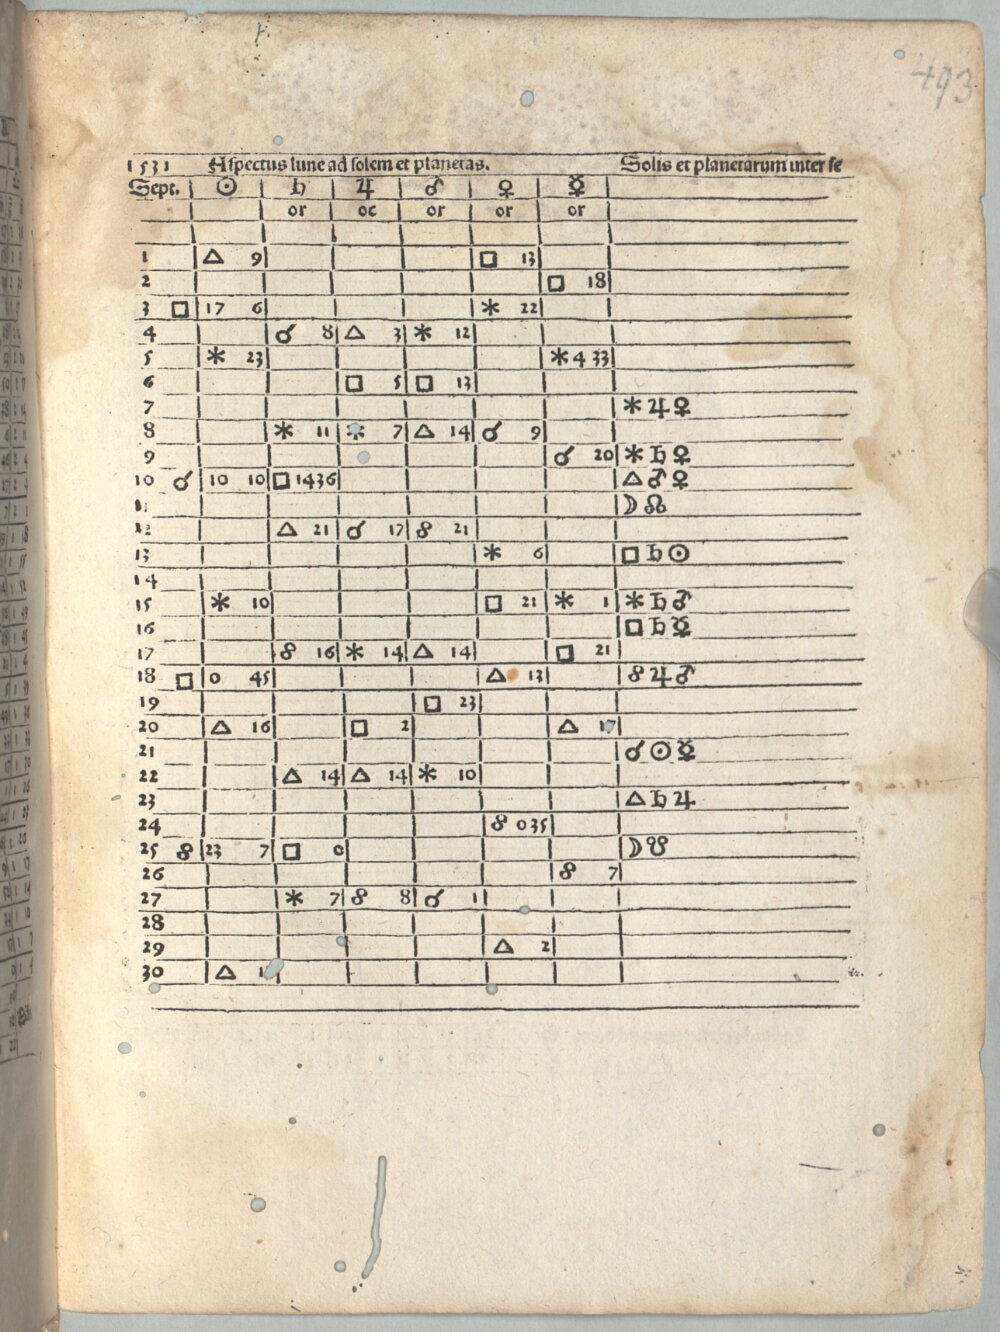 493
1531 Aspectus lune ad solem et planetas. Solis et planetarum inter se
Sept. ☉ ♄ ♃ ♂ ♀ ☿
or oc or or or
1 △ 9 □ 13
2 □ 18
3 □ 17 6 ⚹ 22
4 ☌ 8 △ 3 ⚹ 12
5 ⚹ 23 ⚹ 4 33
6 □ 5 □ 13
7 ⚹ ♃ ♀
8 ⚹ 11 ⚹ 7 △ 14 ☌ 9
9 ☌ 20 ⚹ ♄ ♀
10 ☌ 10 10 □ 14 36 △ ♂ ♀
11 ☽ ☊
12 △ 21 ☌ 17 ☍ 21
13 ⚹ 6 □ ♄ ☉
14
15 ⚹ 10 □ 21 ⚹ 1 ⚹ ♄ ♂
16 □ ♄ ☿
17 ☍ 16 ⚹ 14 △ 14 □ 21
18 □ 0 45 △ 13 ☍ ♃ ♂
19 □ 23
20 △ 16 □ 2 △ 17
21 ☌ ☉ ☿
22 △ 14 △ 14 ⚹ 10
23 △ ♄ ♃
24 ☍ 0 35
25 ☍ 23 7 □ 0 ☽ ☋
26 ☍ 7
27 ⚹ 7 ☍ 8 ☌ 1
28
29 △ 2
30 △